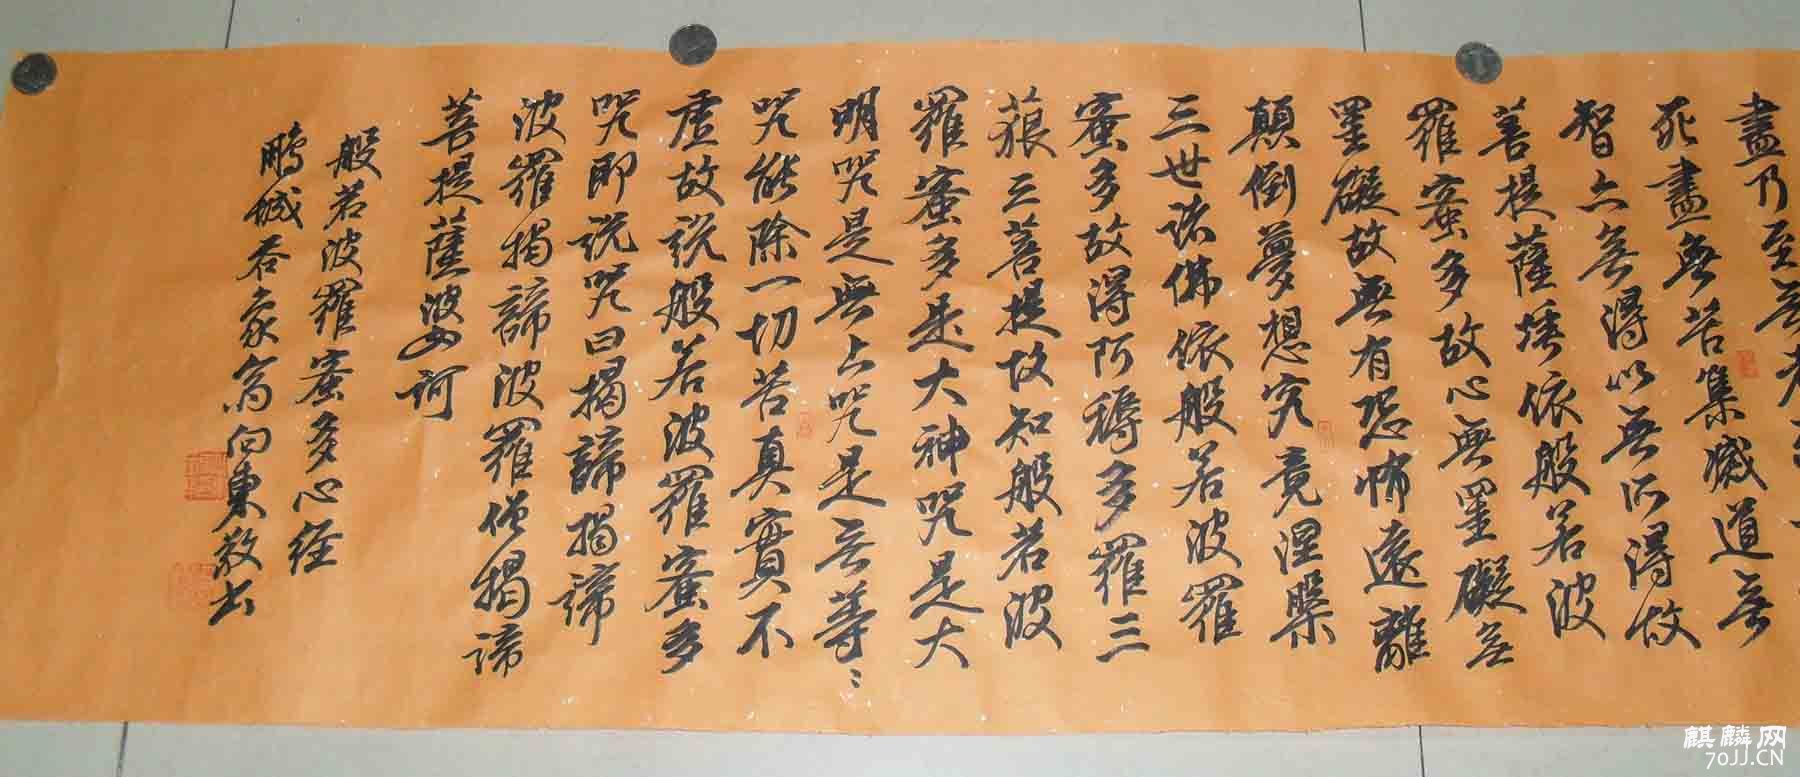 盡乃至無老
死盡無苦集滅道無
智亦無得以無所得故
菩提薩埵依般若波
羅蜜多故心無罣礙無
罣礙故無有恐怖遠離
顛倒夢想究竟涅槃
三世諸佛依般若波羅
蜜多故得阿耨多羅三
藐三菩提故知般若波
羅蜜多是大神咒是大
明咒是無上咒是無等〻
咒能除一切苦真實不
虛故說般若波羅蜜多
咒即說咒曰揭諦揭諦
波羅揭諦波羅僧揭諦
菩提薩婆訶
般若波羅蜜多心經
鵬城向東敬書
麒麟网
70JJ.CN